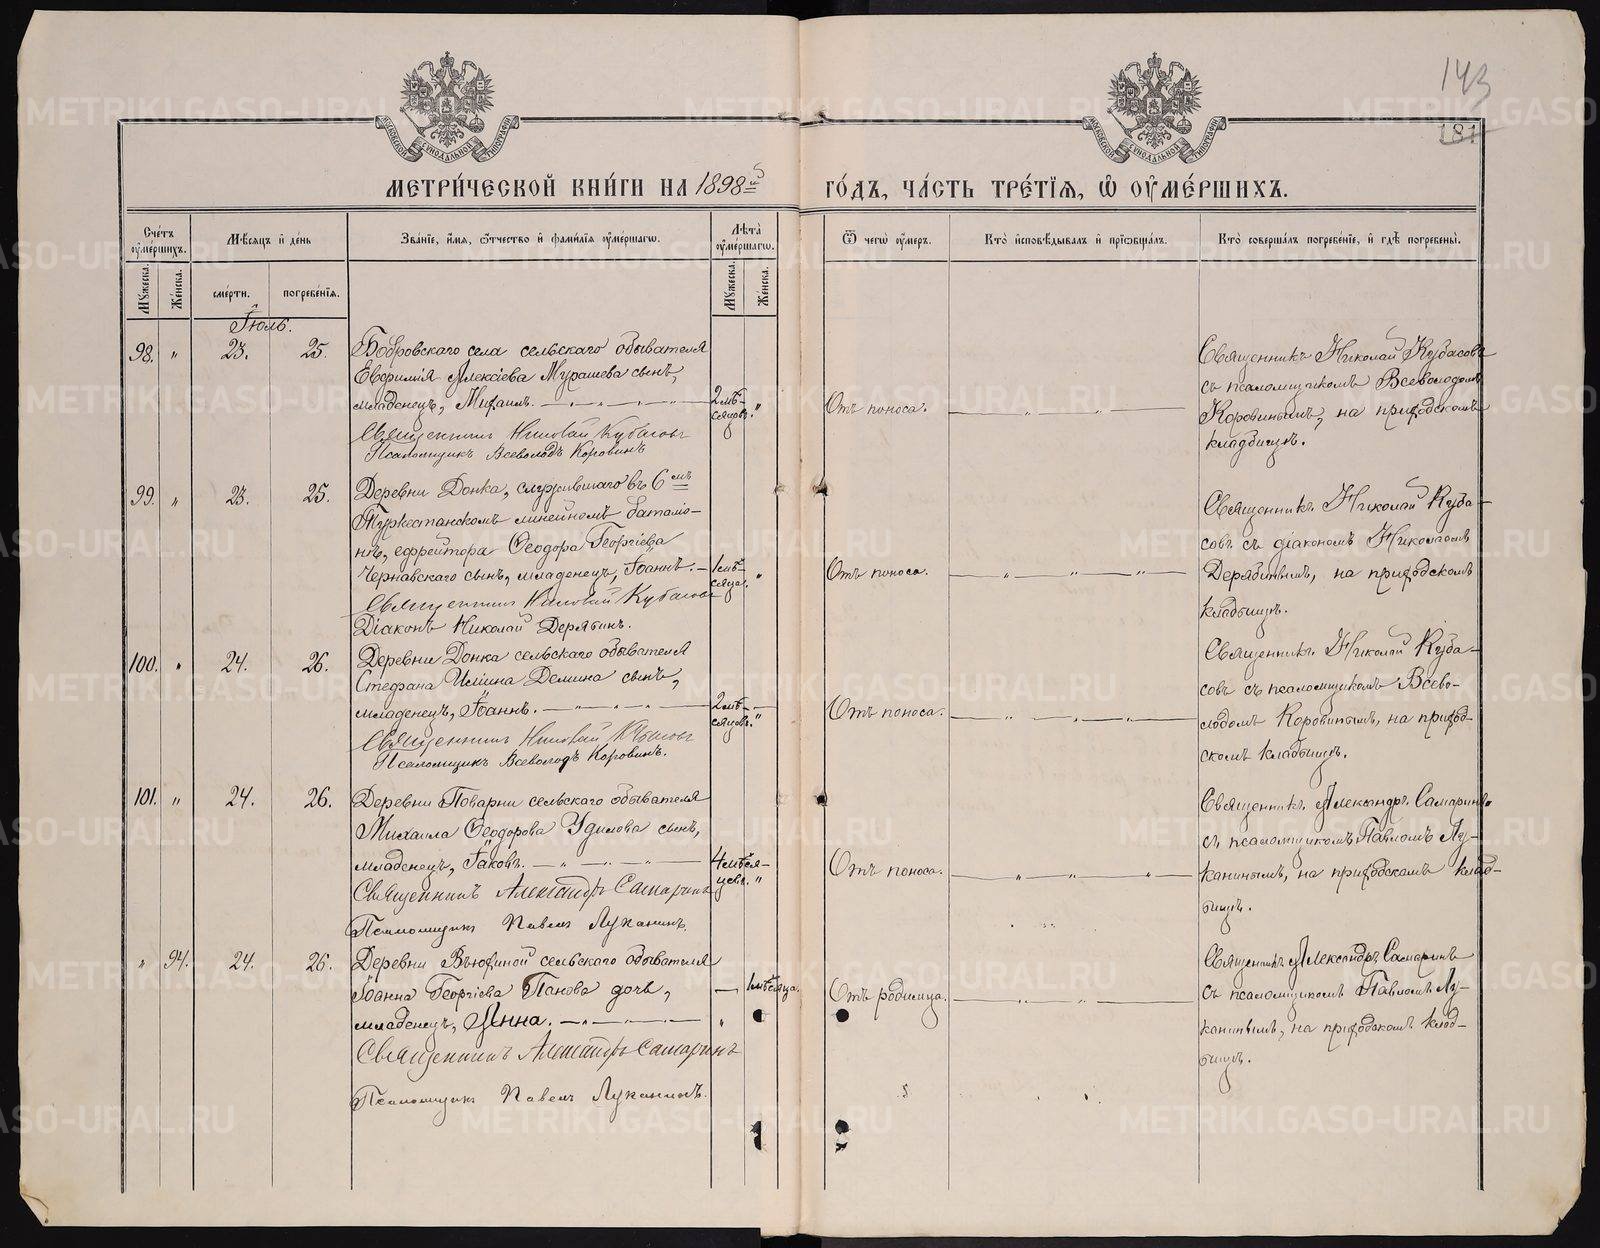 143
181
МОСКОВСКОЙ СѴНОДАЛЬНОЙ ТИПОГРАФІИ
МОСКОВСКОЙ СѴНОДАЛЬНОЙ ТИПОГРАФІИ
МЕТРИ́ЧЕСКОЙ КНИ́ГИ НА 1898й
ГО́ДЪ, ЧА́СТЬ ТРЕ́ТІѦ, Ѽ ОУ҆МЕ́РШИХЪ.
Сче́тъ оу҆ме́ршихъ.
Мѣ́сѧцъ и҆ де́нь
Зва́нїе, и҆́мѧ, ѻ҆́тчество и҆ фами́лїѧ оу҆ме́ршагѡ.
Лѣ̑та̀ оу҆ме́ршагѡ.
Мꙋ́жеска.
Же́нска.
сме́рти.
погребе́нїѧ.
Мꙋ́жеска.
Же́нска.
Ѿ чегѡ̀ оу҆́меръ.
Кто̀ и҆сповѣ́дывалъ и҆ прїѡбща́лъ.
Кто̀ соверша́лъ погребе́нїе, и҆ гдѣ̀ погребены̀.
Іюль.
98. „ 23. 25. Бобровскаго села сельскаго обывателя
Евѳимія Алексіева Мурашева сынъ,
младенецъ, Михаилъ. — „ — „ — 2 мѣ-
сяцовъ. „
Священникъ Николай Кубасовъ
Псаломщикъ Всеволодъ Коровинъ
Отъ поноса. — „ „ —
Священникъ Николай Кубасовъ
съ псаломщикомъ Всеволодомъ
Коровинымъ, на приходскомъ
кладбищѣ.
99. „ 23. 25. Деревни Донка, служившаго въ 6мъ
Туркестанскомъ линейномъ баталіо-
нѣ, ефрейтора Ѳеодора Георгіева
Чернавскаго сынъ, младенецъ, Іоаннъ. — 1 мѣ-
сяца. „
Священникъ Николай Кубасовъ
Діаконъ Николай Дерябинъ.
Отъ поноса. — „ — „ — „ —
Священникъ Николай Куба-
совъ съ діакономъ Николаемъ
Дерябинымъ, на приходскомъ
кладбищѣ.
100. „ 24. 26. Деревни Донка сельскаго обывателя
Стефана Иліина Демина сынъ,
младенецъ, Іоаннъ. — „ — „ — „ — 2 мѣ-
сяцовъ. „
Священникъ Николай Кубасовъ
Псаломщикъ Всеволодъ Коровинъ.
Отъ поноса. — „ — „ — „ —
Священникъ Николай Куба-
совъ съ псаломщикомъ Всево-
лодомъ Коровинымъ, на приход-
скомъ кладбищѣ.
101. „ 24. 26. Деревни Поварни сельскаго обывателя
Михаила Ѳеодорова Удилова сынъ,
младенецъ, Іаковъ. — „ — „ — „ — 4 мѣся-
цевъ. „
Священникъ Александръ Самаринъ
Псаломщикъ Павелъ Луканинъ.
Отъ поноса. — „ — „ — „ —
Священникъ Александръ Самаринъ
съ псаломщикомъ Павломъ Лу-
канинымъ, на приходскомъ клад-
бищѣ.
„ 94. 24. 26. Деревни Вьюхиной сельскаго обывателя
Іоанна Георгіева Панова дочь, — 1 мѣсяца.
младенецъ, Анна. — „ — „ — „ — „
Священникъ Александръ Самаринъ
Псаломщикъ Павелъ Луканинъ.
Отъ родимца. — „ — „ —
Священникъ Александръ Самаринъ
съ псаломщикомъ Павломъ Лу-
канинымъ, на приходскомъ клад-
бищѣ.
METRIKI.GASO-URAL.RU